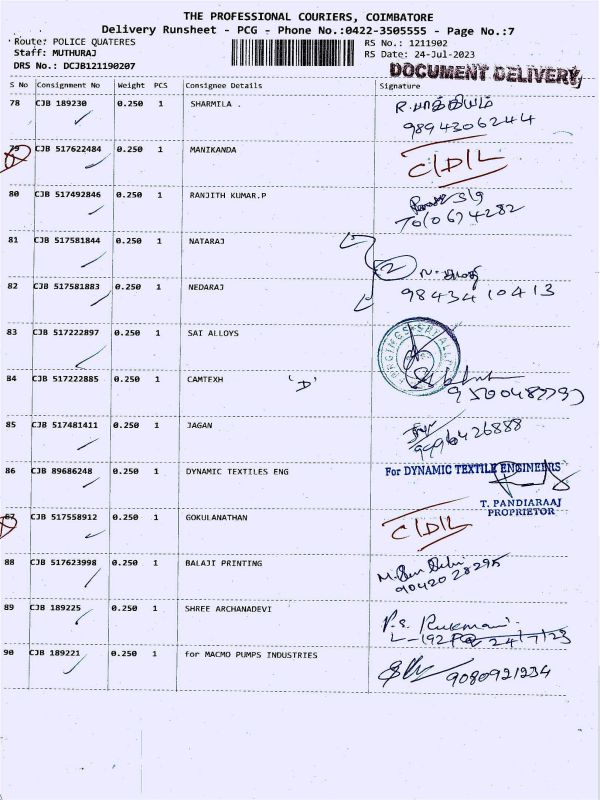 THE PROFESSIONAL COURIERS, COIMBATORE
Delivery Runsheet - PCG - Phone No.:0422-3505555 - Page No.:7
Route: POLICE QUATERES RS No.: 1211902
Staff: MUTHURAJ RS Date: 24-Jul-2023
DRS No.: DCJB121190207 DOCUMENT DELIVERY
S No Consignment No Weight PCS Consignee Details Signature
78 CJB 189230 0.250 1 SHARMILA .
9894306244
79 CJB 517622484 0.250 1 MANIKANDA C/D/L
80 CJB 517492846 0.250 1 RANJITH KUMAR.P S/9
81 CJB 517581844 0.250 1 NATARAJ
2
82 CJB 517581883 0.250 1 NEDARAJ 9843410413
83 CJB 517222897 0.250 1 SAI ALLOYS
84 CJB 517222885 0.250 1 CAMTEXH 'D'
85 CJB 517481411 0.250 1 JAGAN
86 CJB 89686248 0.250 1 DYNAMIC TEXTILES ENG For DYNAMIC TEXTILE ENGINEERS
T. PANDIARAAJ
PROPRIETOR
87 CJB 517558912 0.250 1 GOKULANATHAN C/D/L
88 CJB 517623998 0.250 1 BALAJI PRINTING
9042028295
89 CJB 189225 0.250 1 SHREE ARCHANADEVI P.S. Rukmani
24/7/23
90 CJB 189221 0.250 1 for MACMO PUMPS INDUSTRIES 9080921234